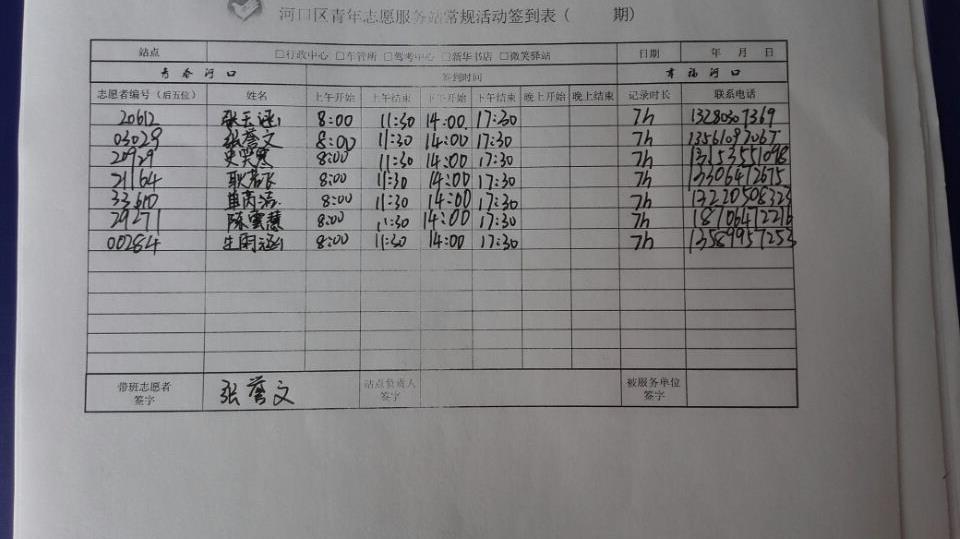 河口区青年志愿服务站常规活动签到表（ 期）
站点 □行政中心 □车管所 □驾考中心 □新华书店 □微笑驿站 日期 年 月 日
青春河口 签到时间 幸福河口
志愿者编号（后五位） 姓名 上午开始 上午结束 下午开始 下午结束 晚上开始 晚上结束 记录时长 联系电话
20612 张玉涵 8:00 11:30 14:00 17:30 7h 13280307369
03029 张誉文 8:00 11:30 14:00 17:30 7h 13561092067
20929 史笑寒 8:00 11:30 14:00 17:30 7h 13153551098
21164 8:00 11:30 14:00 17:30 7h 13306412675
33610 8:00 11:30 14:00 17:30 7h 13220508323
29271 陈雲慧 8:00 11:30 14:00 17:30 7h 18706412216
00284 8:00 11:30 14:00 17:30 7h 13589957253
带班志愿者签字 张誉文 站点负责人签字 被服务单位签字